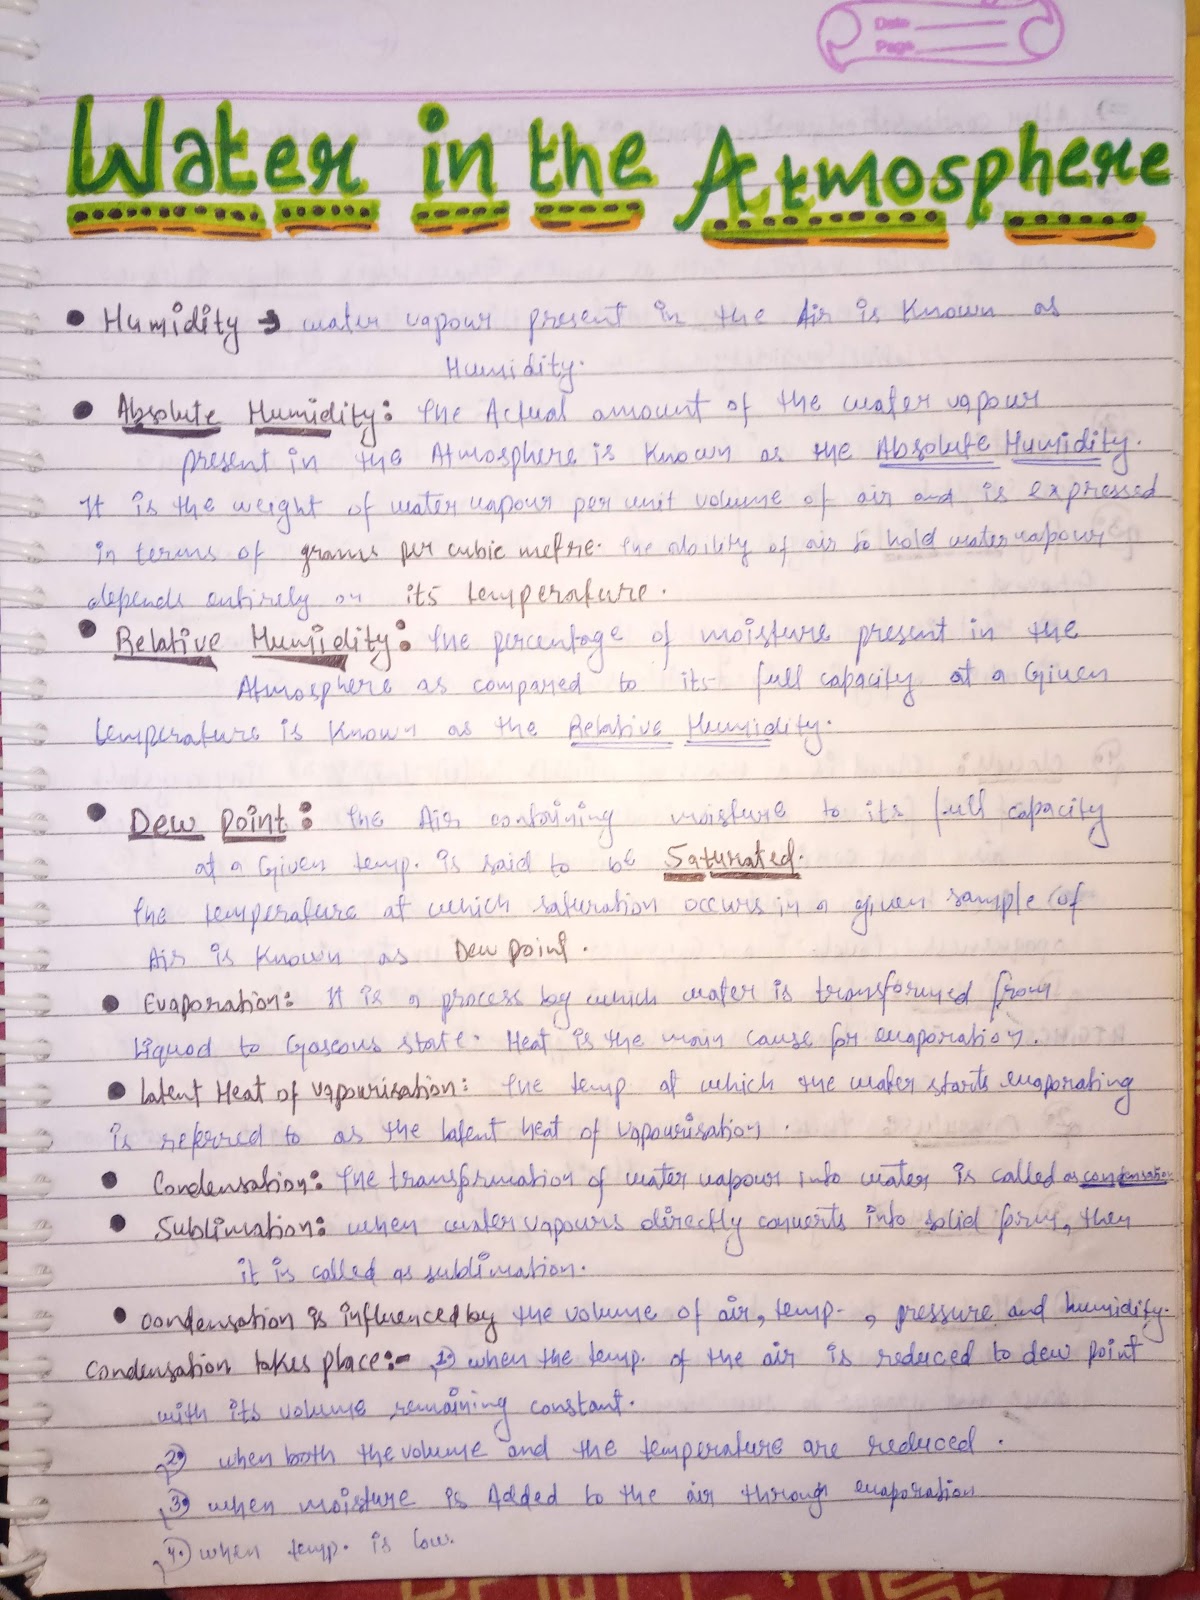 Date
Page
Water in the Atmosphere
• Humidity → water vapour present in the Air is Known as
Humidity.
• Absolute Humidity: The Actual amount of the water vapour
present in the Atmosphere is Known as the Absolute Humidity.
It is the weight of water vapour per unit volume of air and is expressed
in terms of grams per cubic metre. The ability of air to hold water vapour
depends entirely on its temperature.
• Relative Humidity: The percentage of moisture present in the
Atmosphere as compared to its full capacity at a Given
temperature is Known as the Relative Humidity.
• Dew Point: The Air containing moisture to its full capacity
at a Given temp. is said to be Saturated.
The temperature at which saturation occurs in a given sample of
Air is Known as Dew point.
• Evaporation: It is a process by which water is transformed from
Liquod to Gaseous state. Heat is the main cause for evaporation.
• Latent Heat of vapourisation: The temp at which the water starts evaporating
is referred to as the latent heat of vapourisation.
• Condensation: The transformation of water vapour into water is called as condensation
• Sublimation: when water vapours directly converts into solid form, then
it is called as sublimation.
• Condensation is influenced by the volume of air, temp., pressure and humidity.
Condensation takes place:- 1. when the temp. of the air is reduced to dew point
with its volume remaining constant.
2. when both the volume and the temperature are reduced.
3. when moisture is Added to the air through evaporation
4. when temp. is low.